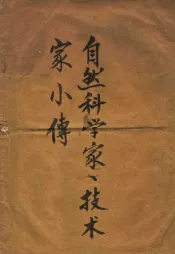 自然科学家、技术
家小傳